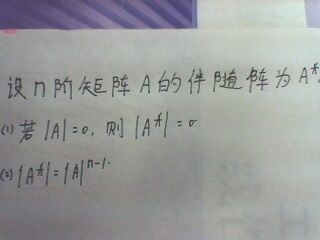 设n阶矩阵A的伴随阵为A*,
(1) 若|A|=0, 则|A*|=0
(2) |A*|=|A|ⁿ⁻¹.